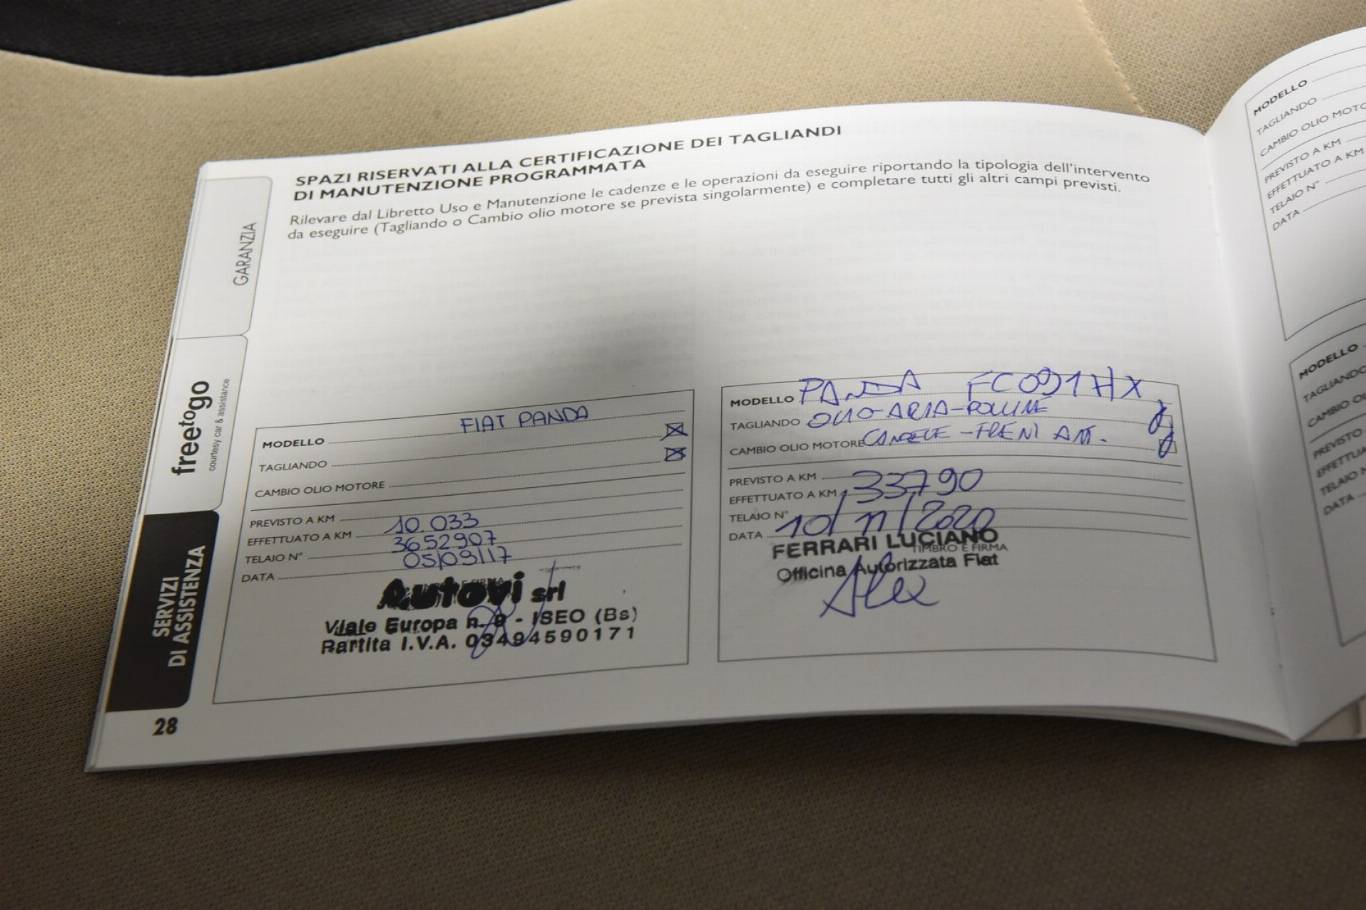 SPAZI RISERVATI ALLA CERTIFICAZIONE DEI TAGLIANDI
DI MANUTENZIONE PROGRAMMATA
Rilevare dal Libretto Uso e Manutenzione le cadenze e le operazioni da eseguire riportando la tipologia dell'intervento
da eseguire (Tagliando o Cambio olio motore se prevista singolarmente) e completare tutti gli altri campi previsti.
GARANZIA
freetogo
courtesy car & assistance
SERVIZI
DI ASSISTENZA
28
MODELLO FIAT PANDA
TAGLIANDO
CAMBIO OLIO MOTORE
PREVISTO A KM
EFFETTUATO A KM 10.033
TELAIO N° 3652907
DATA 05/09/17
Autovi srl
Viale Europa n. 9 - ISEO (Bs)
Partita I.V.A. 03494590171
MODELLO PANDA FC091HX
TAGLIANDO OLIO-ARIA-POLLINE
CAMBIO OLIO MOTORE CANDELE - FRENI ANT.
PREVISTO A KM
EFFETTUATO A KM 33790
TELAIO N°
DATA 10/11/2020
FERRARI LUCIANO
TIMBRO E FIRMA
Officina Autorizzata Fiat
MODELLO
TAGLIANDO
CAMBIO OLIO MOTO
PREVISTO A KM
EFFETTUATO A KM
TELAIO N°
DATA
MODELLO
TAGLIANDO
CAMBIO OLI
PREVISTO
EFFETTUA
TELAIO N
DATA